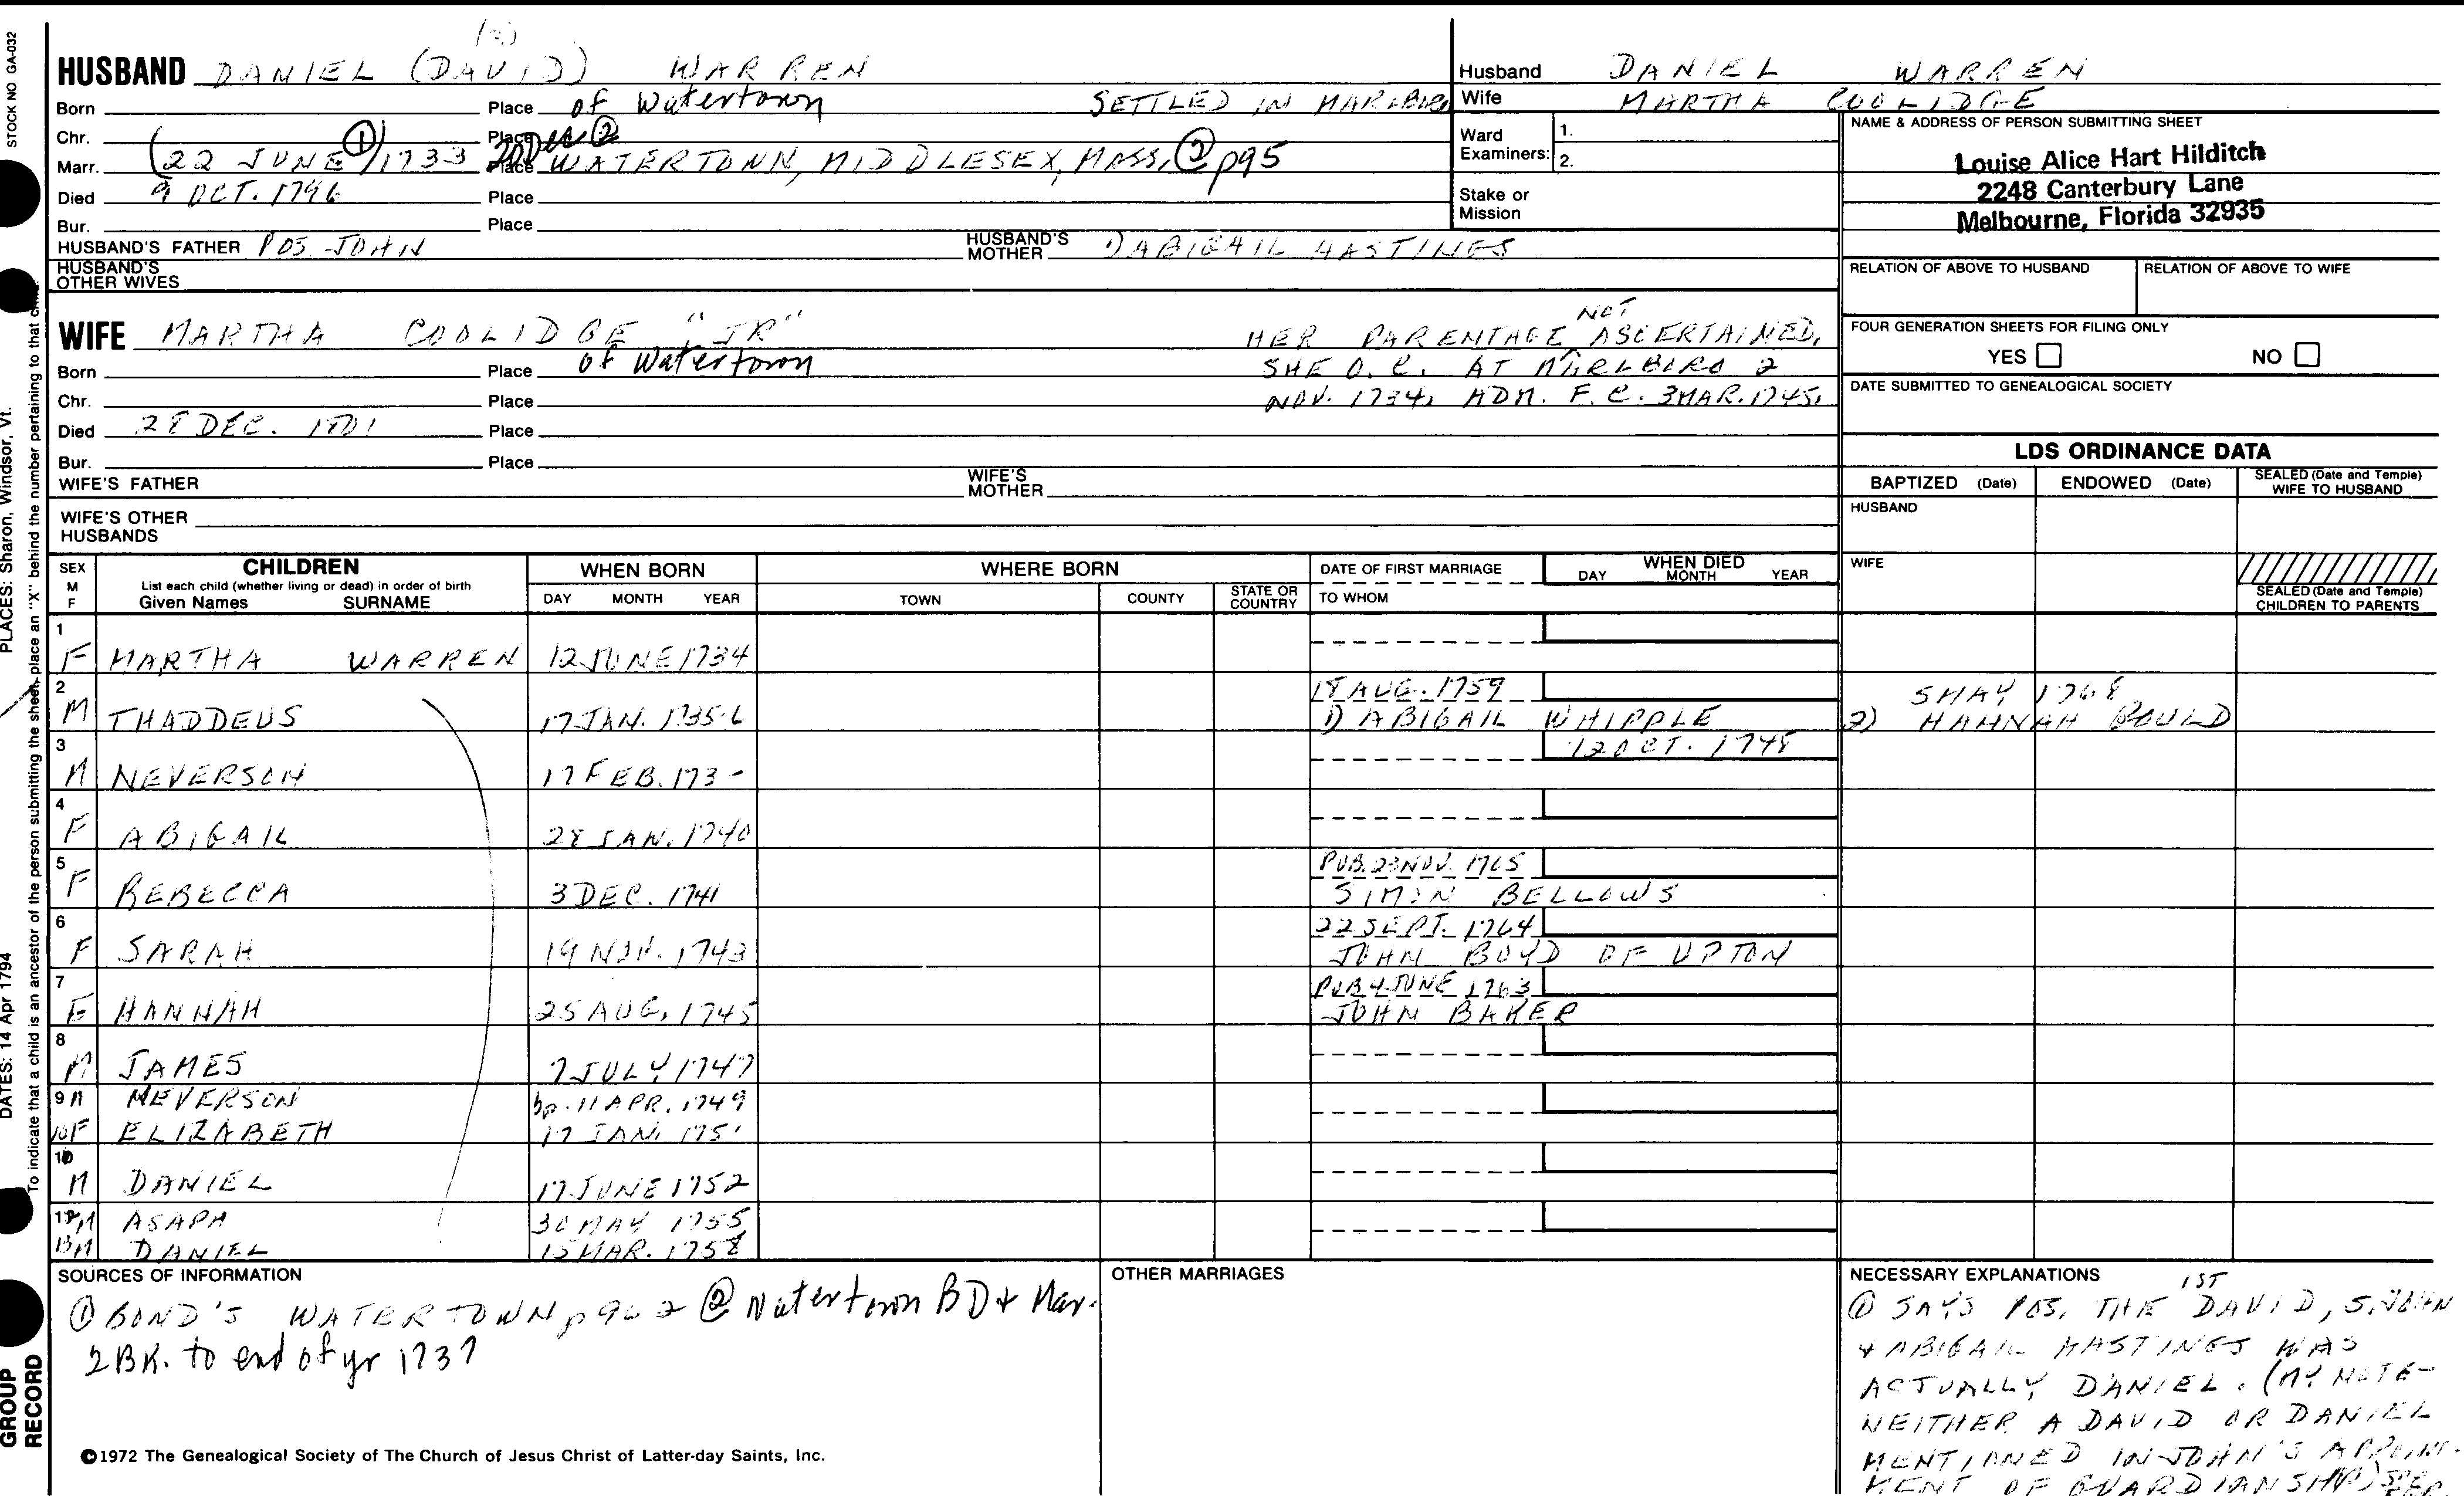 STOCK NO GA-032
HUSBAND DANIEL (DAVID) WARREN
Born Place of Watertown SETTLED IN MARLBORO
Chr. Place
Marr. (22 JUNE ① 1733 20 Dec ② Place WATERTOWN, MIDDLESEX, MASS, ② p95
Died 9 OCT. 1796 Place
Bur. Place
HUSBAND'S FATHER POS JOHN HUSBAND'S MOTHER 1) ABIGAIL HASTINGS
HUSBAND'S OTHER WIVES
WIFE MARTHA COOLIDGE "JR" HER PARENTAGE NOT ASCERTAINED,
Born Place of Watertown SHE O. C. AT MARLBORO 2
Chr. Place NOV. 1734, ADM. F. C. 3 MAR. 1745,
Died 28 DEC. 1801 Place
Bur. Place
WIFE'S FATHER WIFE'S MOTHER
WIFE'S OTHER HUSBANDS
Husband DANIEL WARREN
Wife MARTHA COOLIDGE
Ward Examiners: 1.
2.
Stake or Mission
NAME & ADDRESS OF PERSON SUBMITTING SHEET
Louise Alice Hart Hilditch
2248 Canterbury Lane
Melbourne, Florida 32935
RELATION OF ABOVE TO HUSBAND RELATION OF ABOVE TO WIFE
FOUR GENERATION SHEETS FOR FILING ONLY
YES NO
DATE SUBMITTED TO GENEALOGICAL SOCIETY
LDS ORDINANCE DATA
BAPTIZED (Date) ENDOWED (Date) SEALED (Date and Temple) WIFE TO HUSBAND
HUSBAND
WIFE
SEALED (Date and Temple) CHILDREN TO PARENTS
SEX M F CHILDREN WHEN BORN WHERE BORN DATE OF FIRST MARRIAGE WHEN DIED
List each child (whether living or dead) in order of birth
Given Names SURNAME DAY MONTH YEAR TOWN COUNTY STATE OR COUNTRY TO WHOM DAY MONTH YEAR
1 F MARTHA WARREN 12 JUNE 1734
2 M THADDEUS 17 JAN. 1735-6 18 AUG. 1759 1) ABIGAIL WHIPPLE 5 MAY 1768 2) HANNAH BOULD
3 M NEVERSON 17 FEB. 173- 12 OCT. 1748
4 F ABIGAIL 28 JAN. 1740
5 F REBECCA 3 DEC. 1741 PUB. 23 NOV. 1765 SIMON BELLOWS
6 F SARAH 19 NOV. 1743 22 SEPT. 1764 JOHN BOYD OF UPTON
7 F HANNAH 25 AUG, 1745 PUB 4 JUNE 1763 JOHN BAKER
8 M JAMES 7 JULY 1747
9 M NEVERSON bp. 11 APR. 1749
10 F ELIZABETH 17 JAN. 1751
M DANIEL 17 JUNE 1752
12 M ASAPH 30 MAY 1755
13 M DANIEL 15 MAR. 1758
SOURCES OF INFORMATION
① BOND'S WATERTOWN p 962 ② Watertown BD & Mar.
2 BK. to end of yr 1737
©1972 The Genealogical Society of The Church of Jesus Christ of Latter-day Saints, Inc.
OTHER MARRIAGES
NECESSARY EXPLANATIONS
① SAYS POS. THE 1ST DAVID, S. JOHN
& ABIGAIL HASTINGS WAS
ACTUALLY DANIEL. (MY NOTE-
NEITHER A DAVID OR DANIEL
MENTIONED IN JOHN'S APPOINT-
MENT OF GUARDIANSHIP)
PLACES: Sharon, Windsor, Vt.
DATES: 14 Apr 1794
To indicate that a child is an ancestor of the person submitting the sheet, place an "X" behind the number pertaining to that child.
GROUP
RECORD